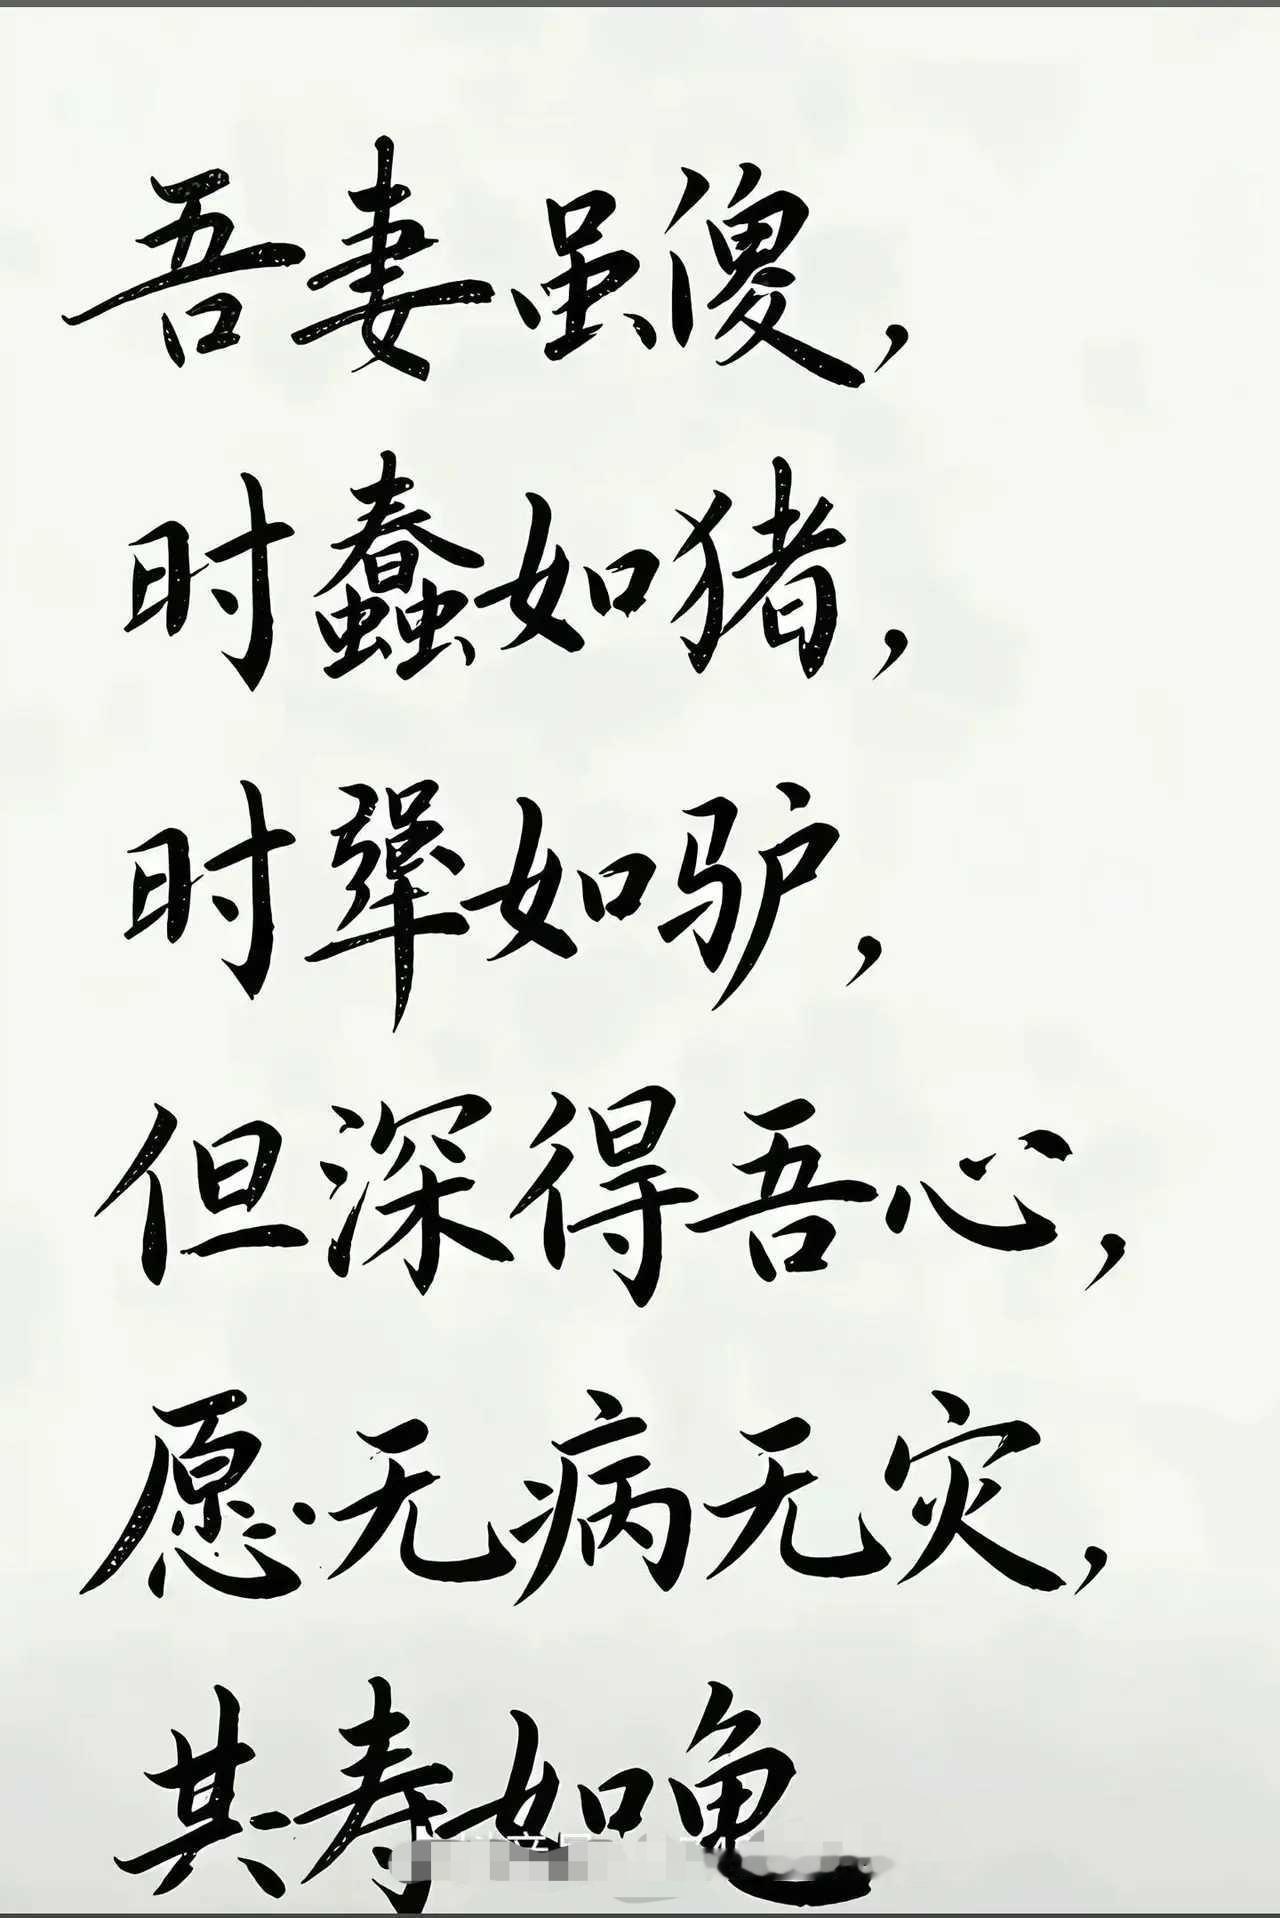 吾妻虽傻，
时蠢如猪，
时犟如驴，
但深得吾心，
愿无病无灾，
其寿如龟